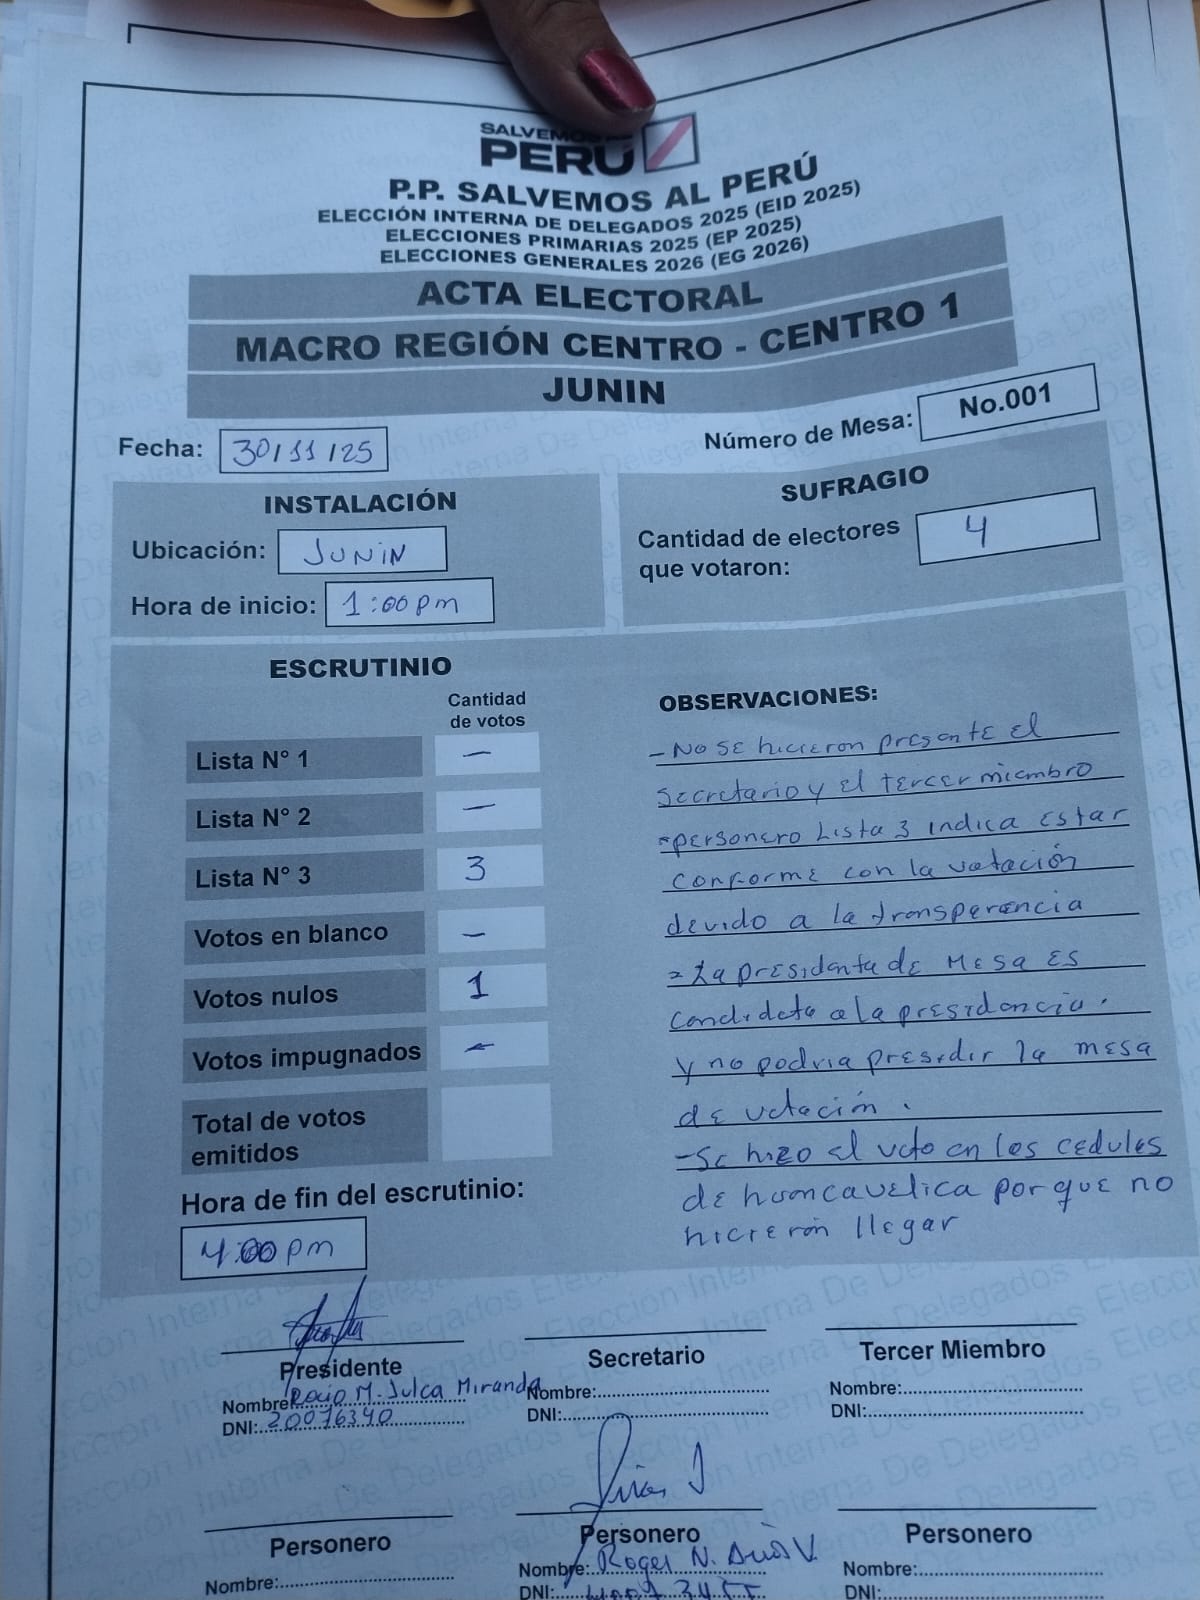 SALVEMOS
PERÚ
P.P. SALVEMOS AL PERÚ
ELECCIÓN INTERNA DE DELEGADOS 2025 (EID 2025)
ELECCIONES PRIMARIAS 2025 (EP 2025)
ELECCIONES GENERALES 2026 (EG 2026)
ACTA ELECTORAL
MACRO REGIÓN CENTRO - CENTRO 1
JUNIN
Fecha: 30/11/25
Número de Mesa: No.001
INSTALACIÓN
Ubicación: JUNIN
Hora de inicio: 1:00pm
SUFRAGIO
Cantidad de electores
que votaron: 4
ESCRUTINIO
Cantidad
de votos
Lista N° 1 —
Lista N° 2 —
Lista N° 3 3
Votos en blanco —
Votos nulos 1
Votos impugnados —
Total de votos
emitidos
Hora de fin del escrutinio:
4:00pm
OBSERVACIONES:
- No se hicieron presente el
secretario y el tercer miembro
- personero Lista 3 indica estar
conforme con la votación
devido a la transparencia
- La presidenta de mesa es
candidata a la presidencia.
y no podria presidir la mesa
de votación.
- Se hizo el voto en las cedulas
de huancavelica porque no
hicieron llegar
Presidente
Nombre: Rocio M. Julca Miranda
DNI: 20076340
Secretario
Nombre:
DNI:
Tercer Miembro
Nombre:
DNI:
Personero
Nombre:
Personero
Nombre: Roger N.
DNI:
Personero
Nombre:
DNI: